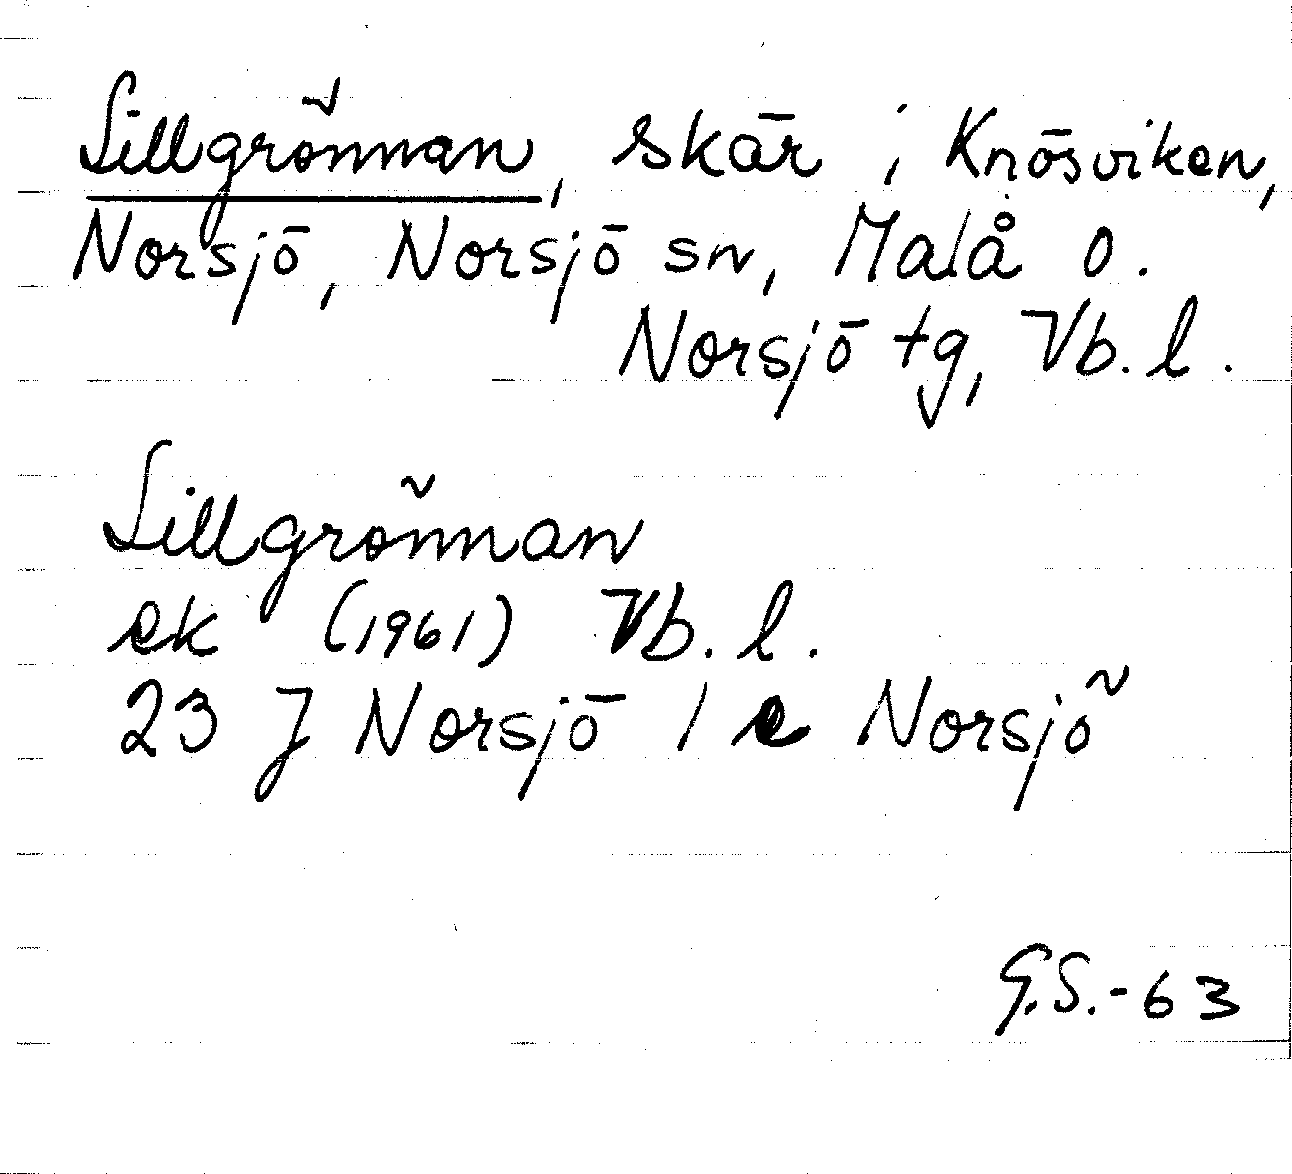 Lillgrönnan, skär i Knösviken,
Norsjö, Norsjö sn, Malå o.
Norsjö tg, Vb. l.
Lillgrönnan
ek (1961) Vb. l.
23 J Norsjö 1 e Norsjö
G.S.-63